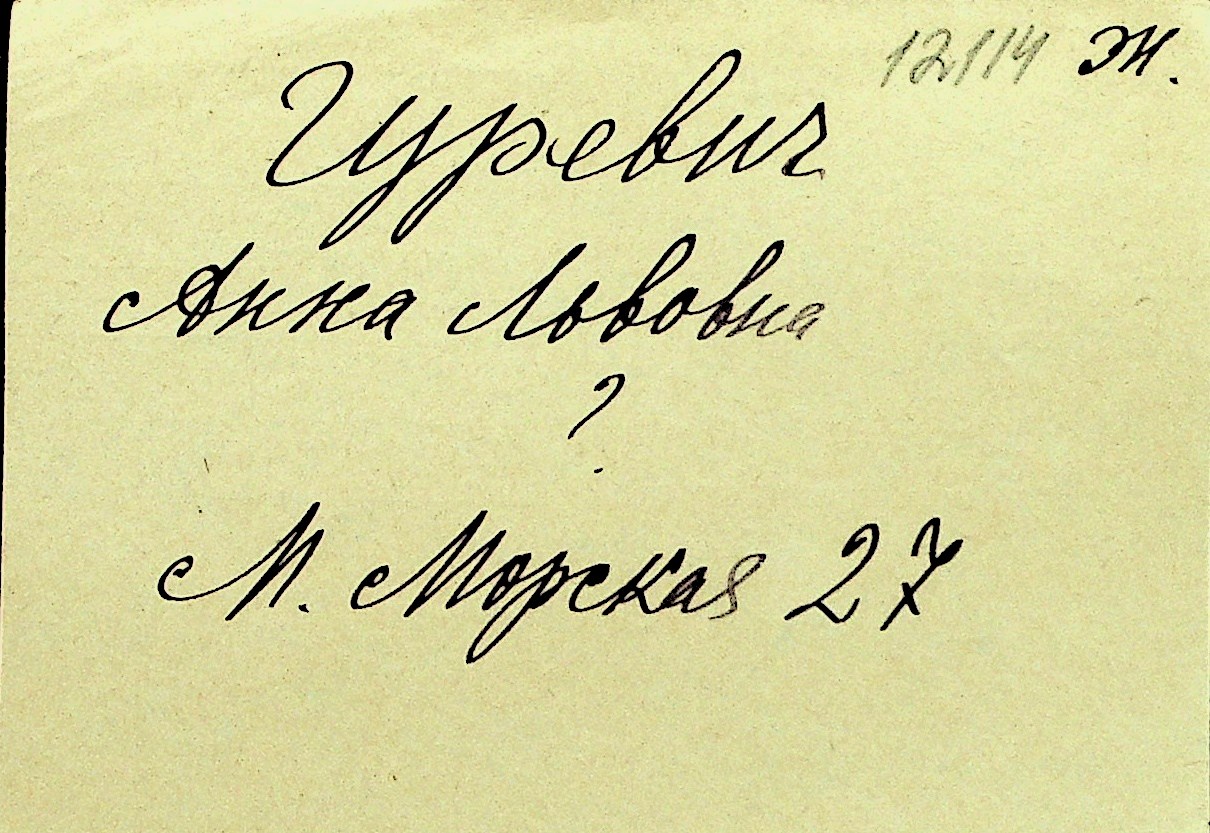 12114 Ж.
Гуревич
Анна Львовна
?
М. Морская 27